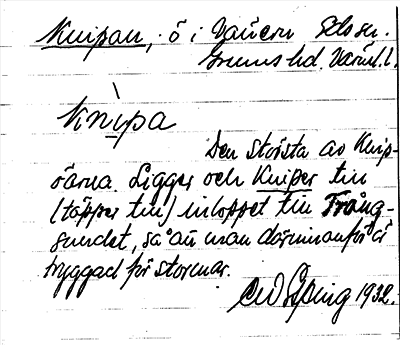 Knipan, ö i Vänern Eds sn.
Grums hd. Värml. l.
Knìpa
Den största av Knip-
öarna. Ligger och Kniper till
(täpper till) inloppet till Trång-
sundet, så att man därinnanför är
tryggad för stormar.
1932.